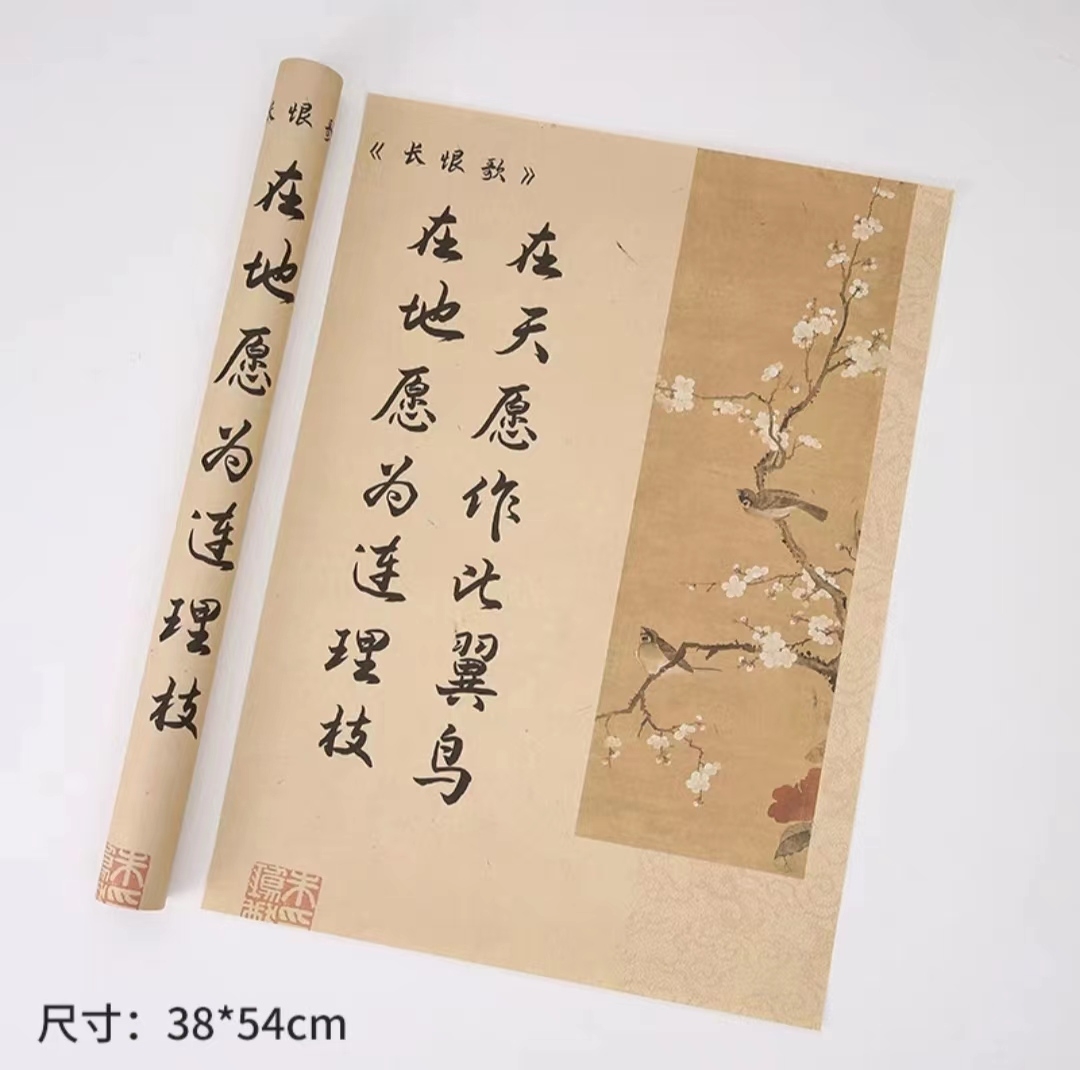 长恨歌
在地愿为连理枝
《长恨歌》
在天愿作比翼鸟
在地愿为连理枝
尺寸：38*54cm